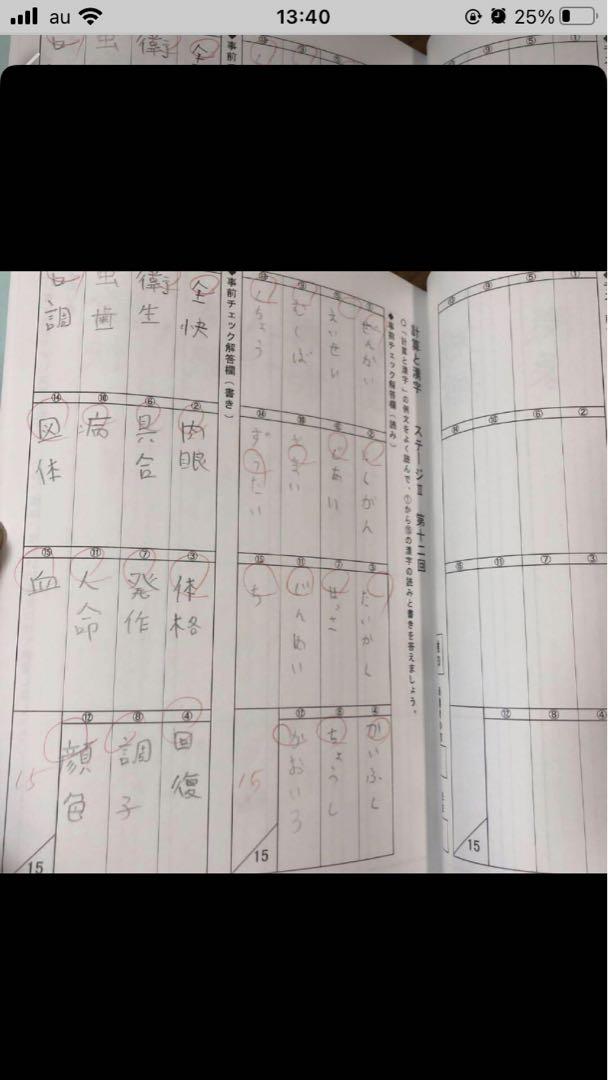 au
13:40
25%
計算と漢字 ステージⅢ 第十二回
○「計算と漢字」の例文をよく読んで、①から⑮の漢字の読みと書きを答えましょう。
◆事前チェック解答欄（読み）
ぜんかい
にくがん
たいかく
④
かいふく
えいせい
ぐあい
⑦
ほっさ
⑧
ちょうし
むしば
⑪
じんめい
⑫
かおいろ
⑭
ずったい
⑮
ち
15
15
◆事前チェック解答欄（書き）
全快
②
肉眼
③
体格
④
回復
衛生
⑥
具合
⑦
発作
⑧
調子
虫歯
⑩
病
⑪
人命
⑫
顔色
調
⑭
図体
⑮
血
15
15
①
②
③
④
⑤
⑥
⑦
⑧
⑪
⑫
15